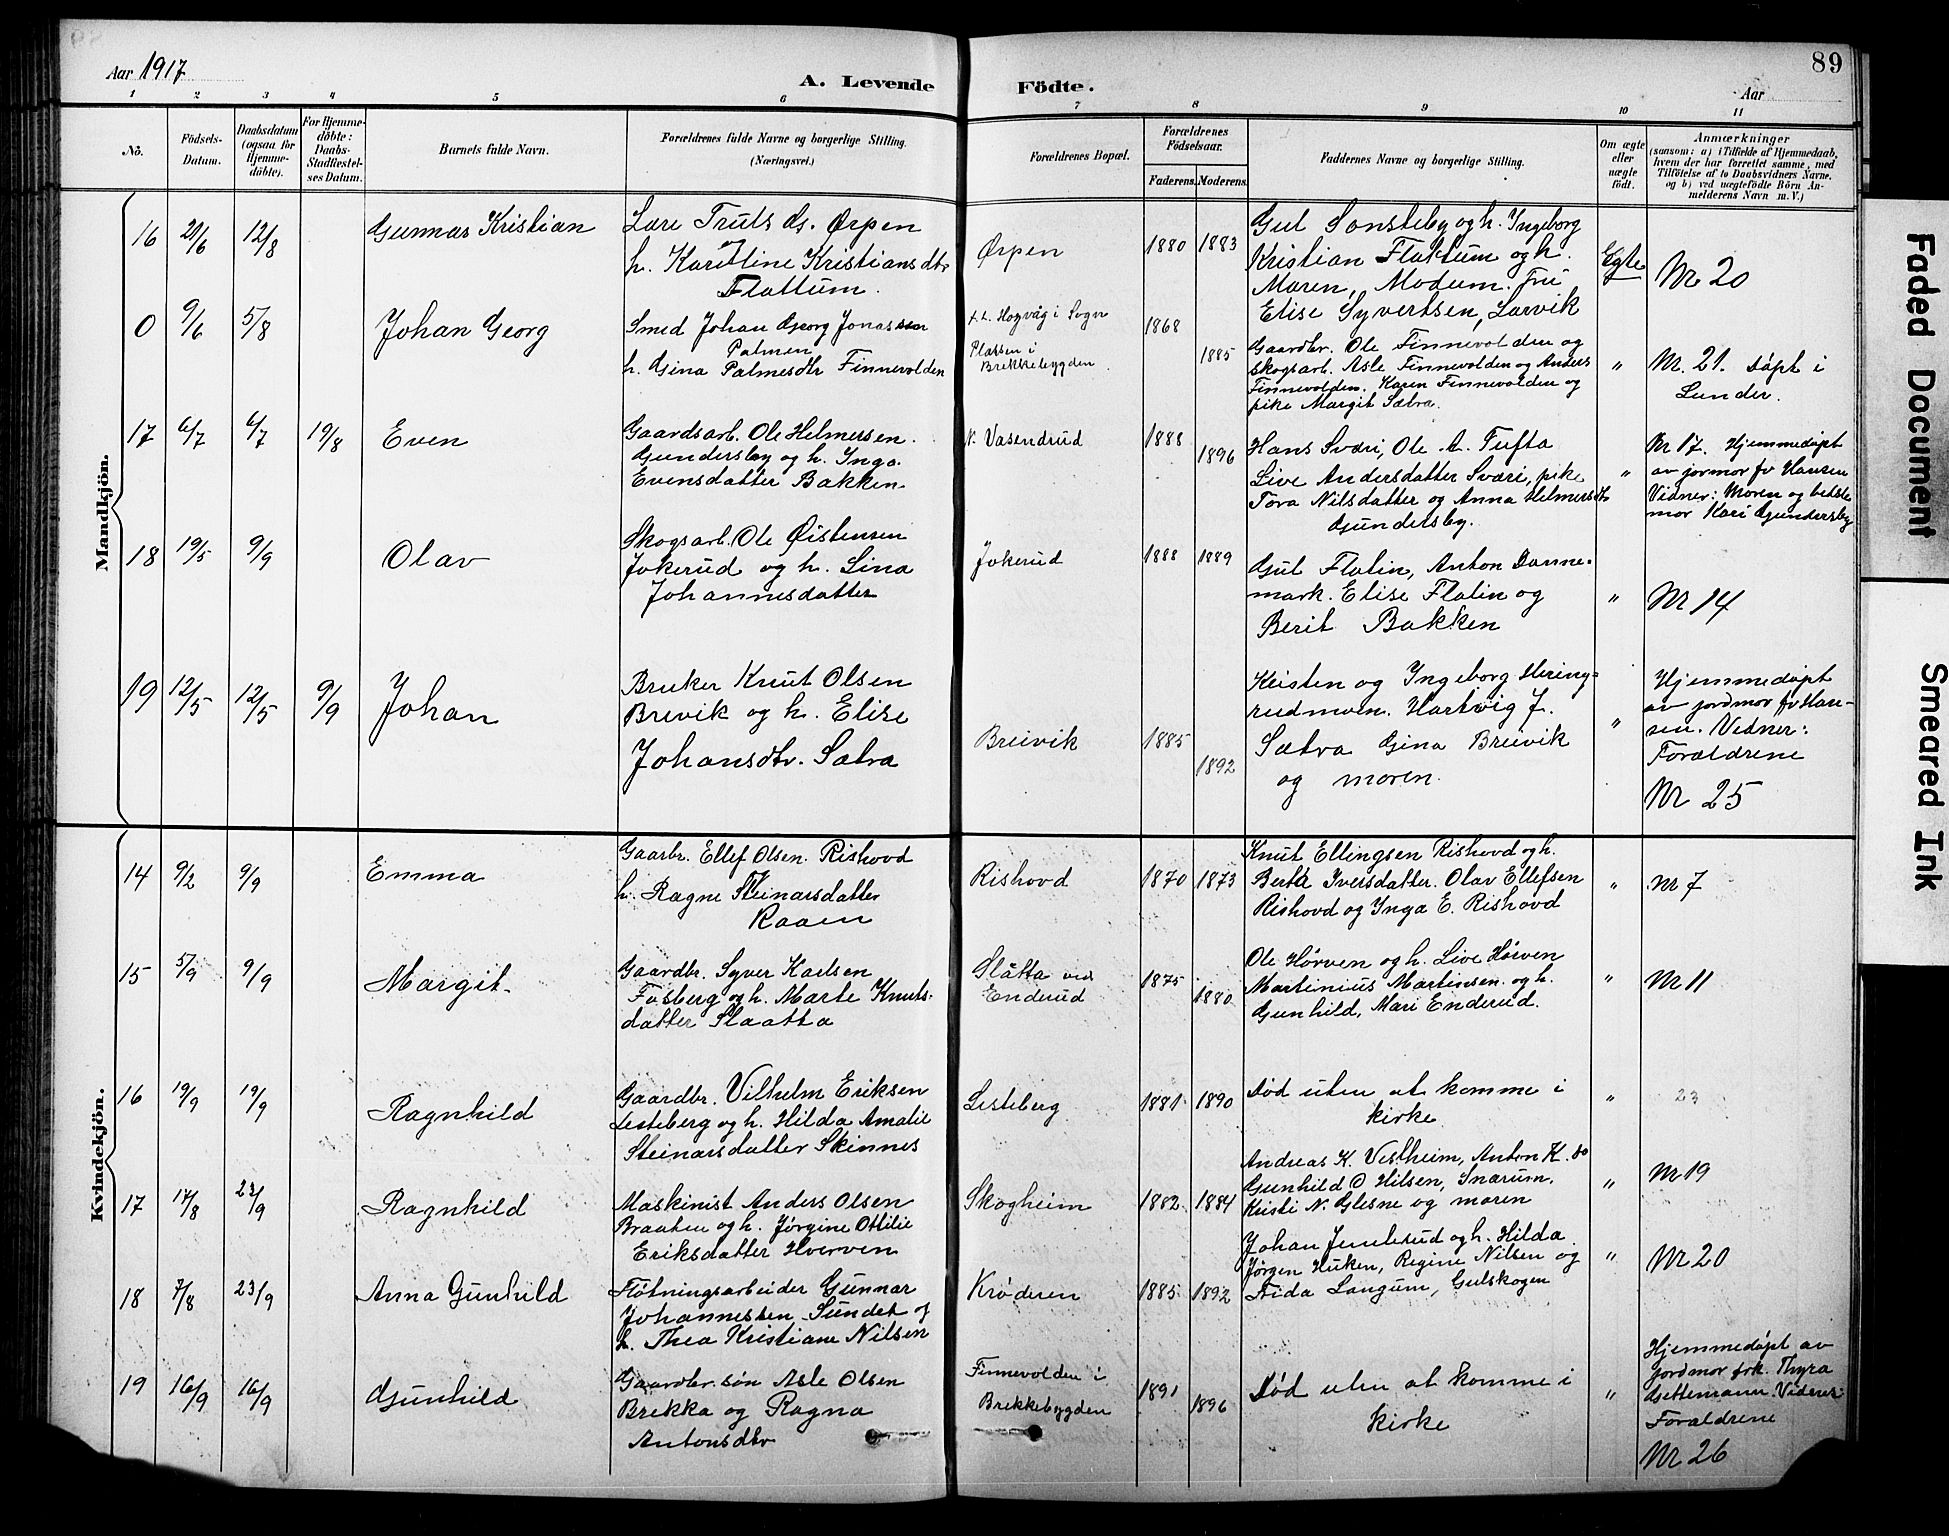 Aar 1917
A. Levende Födte.
Aar
89
1 2 3 4 5 6 7 8 9 10 11
No.
Födsels-Datum.
Daabsdatum (ogsaa for Hjemme-döbte).
For Hjemme-döbte: Daabs-Stadfæstel-ses Datum.
Barnets fulde Navn.
Forældrenes fulde Navne og borgerlige Stilling. (Næringsvei.)
Forældrenes Bopæl.
Forældrenes Födselsaar.
Faderens. Moderens.
Faddernes Navne og borgerlige Stilling.
Om ægte eller uægte födt.
Anmærkninger
(saasom: a) i Tilfælde af Hjemmedaab,
hvem der har forrettet samme, med
Tilföielse af to Daabsvidners Navne,
og b) ved uægtefödte Börn An-
melderens Navn m. V.)
Mandkjön.
16 21/6 12/8
Gunnar Kristian
Lars Truls G. Ørpen
h. Karoline Kristiansdtr
Flattum.
Ørpen
1880 1883
Gul Sønsteby og h. Ingeborg
Kristian Flattum og h.
Maren, Modum. Fru
Elise Syvertsen, Larvik
Egte
Nr 20
0 9/6 5/8
Johan Georg
Smed Johan Georg Jonassen
Palmen
h. Gina Palmesdtr Finnevolden
Hogvåg i Sogn
Plassen i
Brekkebygden
1868
1885
Gaardbr. Ole Finnevolden og
skogsarb. Asle Finnevolden og Anders
Finnevolden. Karen Finnevolden og
pike Margit Sætra.
"
Nr. 21. døpt i
Lunder.
17 6/7 6/7 19/8
Even
Gaardsarb. Ole Helmersen
Gundersby og h. Inga
Evensdatter Bakken
N. Vasendrud
1888
1896
Hans Sværi, Ole A. Tufta
Live Andersdatter Sværi, pike
Tora Nilsdatter og Anna Helmersdt
Gundersby.
"
Nr 17. Hjemmedøpt
av jormor fr Hansen
Vidner: Moren og beste
mor Kari Gundersby
18 19/5 9/9
Olav
Skogsarb. Ole Øistensen
Jokerud og h. Lina
Johannesdatter
Jokerud
1888 1889
Gul Flatin, Anton Danne-
mark. Elise Flatin og
Berit Bakken
"
Nr 14
19 12/5 12/5 9/9
Johan
Bruker Knut Olsen
Brevik og h. Elise
Johansdtr. Sætra
Breivik
1885
1892
Kristen og Ingeborg Hering-
rudmoen. Hartvig J.
Sætra Gina Breivik
og moren.
"
Hjemmedøpt
av jordmor fr Han-
sen. Vidner:
Forældrene
Nr 25
Kvindekjön.
14 9/2 9/9
Emma
Gaarbr. Ellef Olsen Rishovd
h. Ragne Steinarsdatter
Raaen
Rishovd
1870 1873
Knut Ellingsen Rishovd og h.
Berta Iversdatter. Olav Ellefsen
Rishovd og Inga E. Rishovd
"
Nr 7
15 5/9 9/9
Margit
Gaardbr. Syver Karlsen
Fosberg og h. Marte Knuts-
datter Slaatta
Slåtta ved
Enderud
1875
1880
Ole Hørven og h. Live Hørven
Martinius Martinsen og h.
Gunhild, Mari Enderud.
"
Nr 11
16 19/9 19/9
Ragnhild
Gaardbr. Vilhelm Eriksen
Lesteberg og h. Hilda Amalie
Steinarsdatter Skinnes
Lesteberg
1881 1890
Død uten at komme i
kirke
"
23
17 17/8 23/9
Ragnhild
Maskinist Anders Olsen
Braaten og h. Jørgine Ottilie
Eriksdatter Hverven
Skogheim
1882 1884
Andreas K. Vestheim, Anton K. do
Gunhild O Hilsen, Snarum,
Kristi N. Glesne og moren
"
Nr 19
18 7/8 23/9
Anna Gunhild
Fløtningsarbeider Gunnar
Johannessen Sundet og
h. Thea Kristiane Nilsen
Krøderen
1885 1892
Johan Jemterud og h. Hilda
Jørgen Huken, Regine Nilsen og
Frida Langum, Gulskogen
"
Nr 20
19 16/9 16/9
Gunhild
Gaardbr. søn Asle Olsen
Brekka og Ragna
Antonsdtr
Finnevolden i
Brekkebygden
1891
1896
Død uten at komme i
kirke
"
Hjemmedøpt av
jordmor frk. Thyra
Gettemann. Vidner:
Forældrene
Nr 26
Faded Document
Smeared Ink